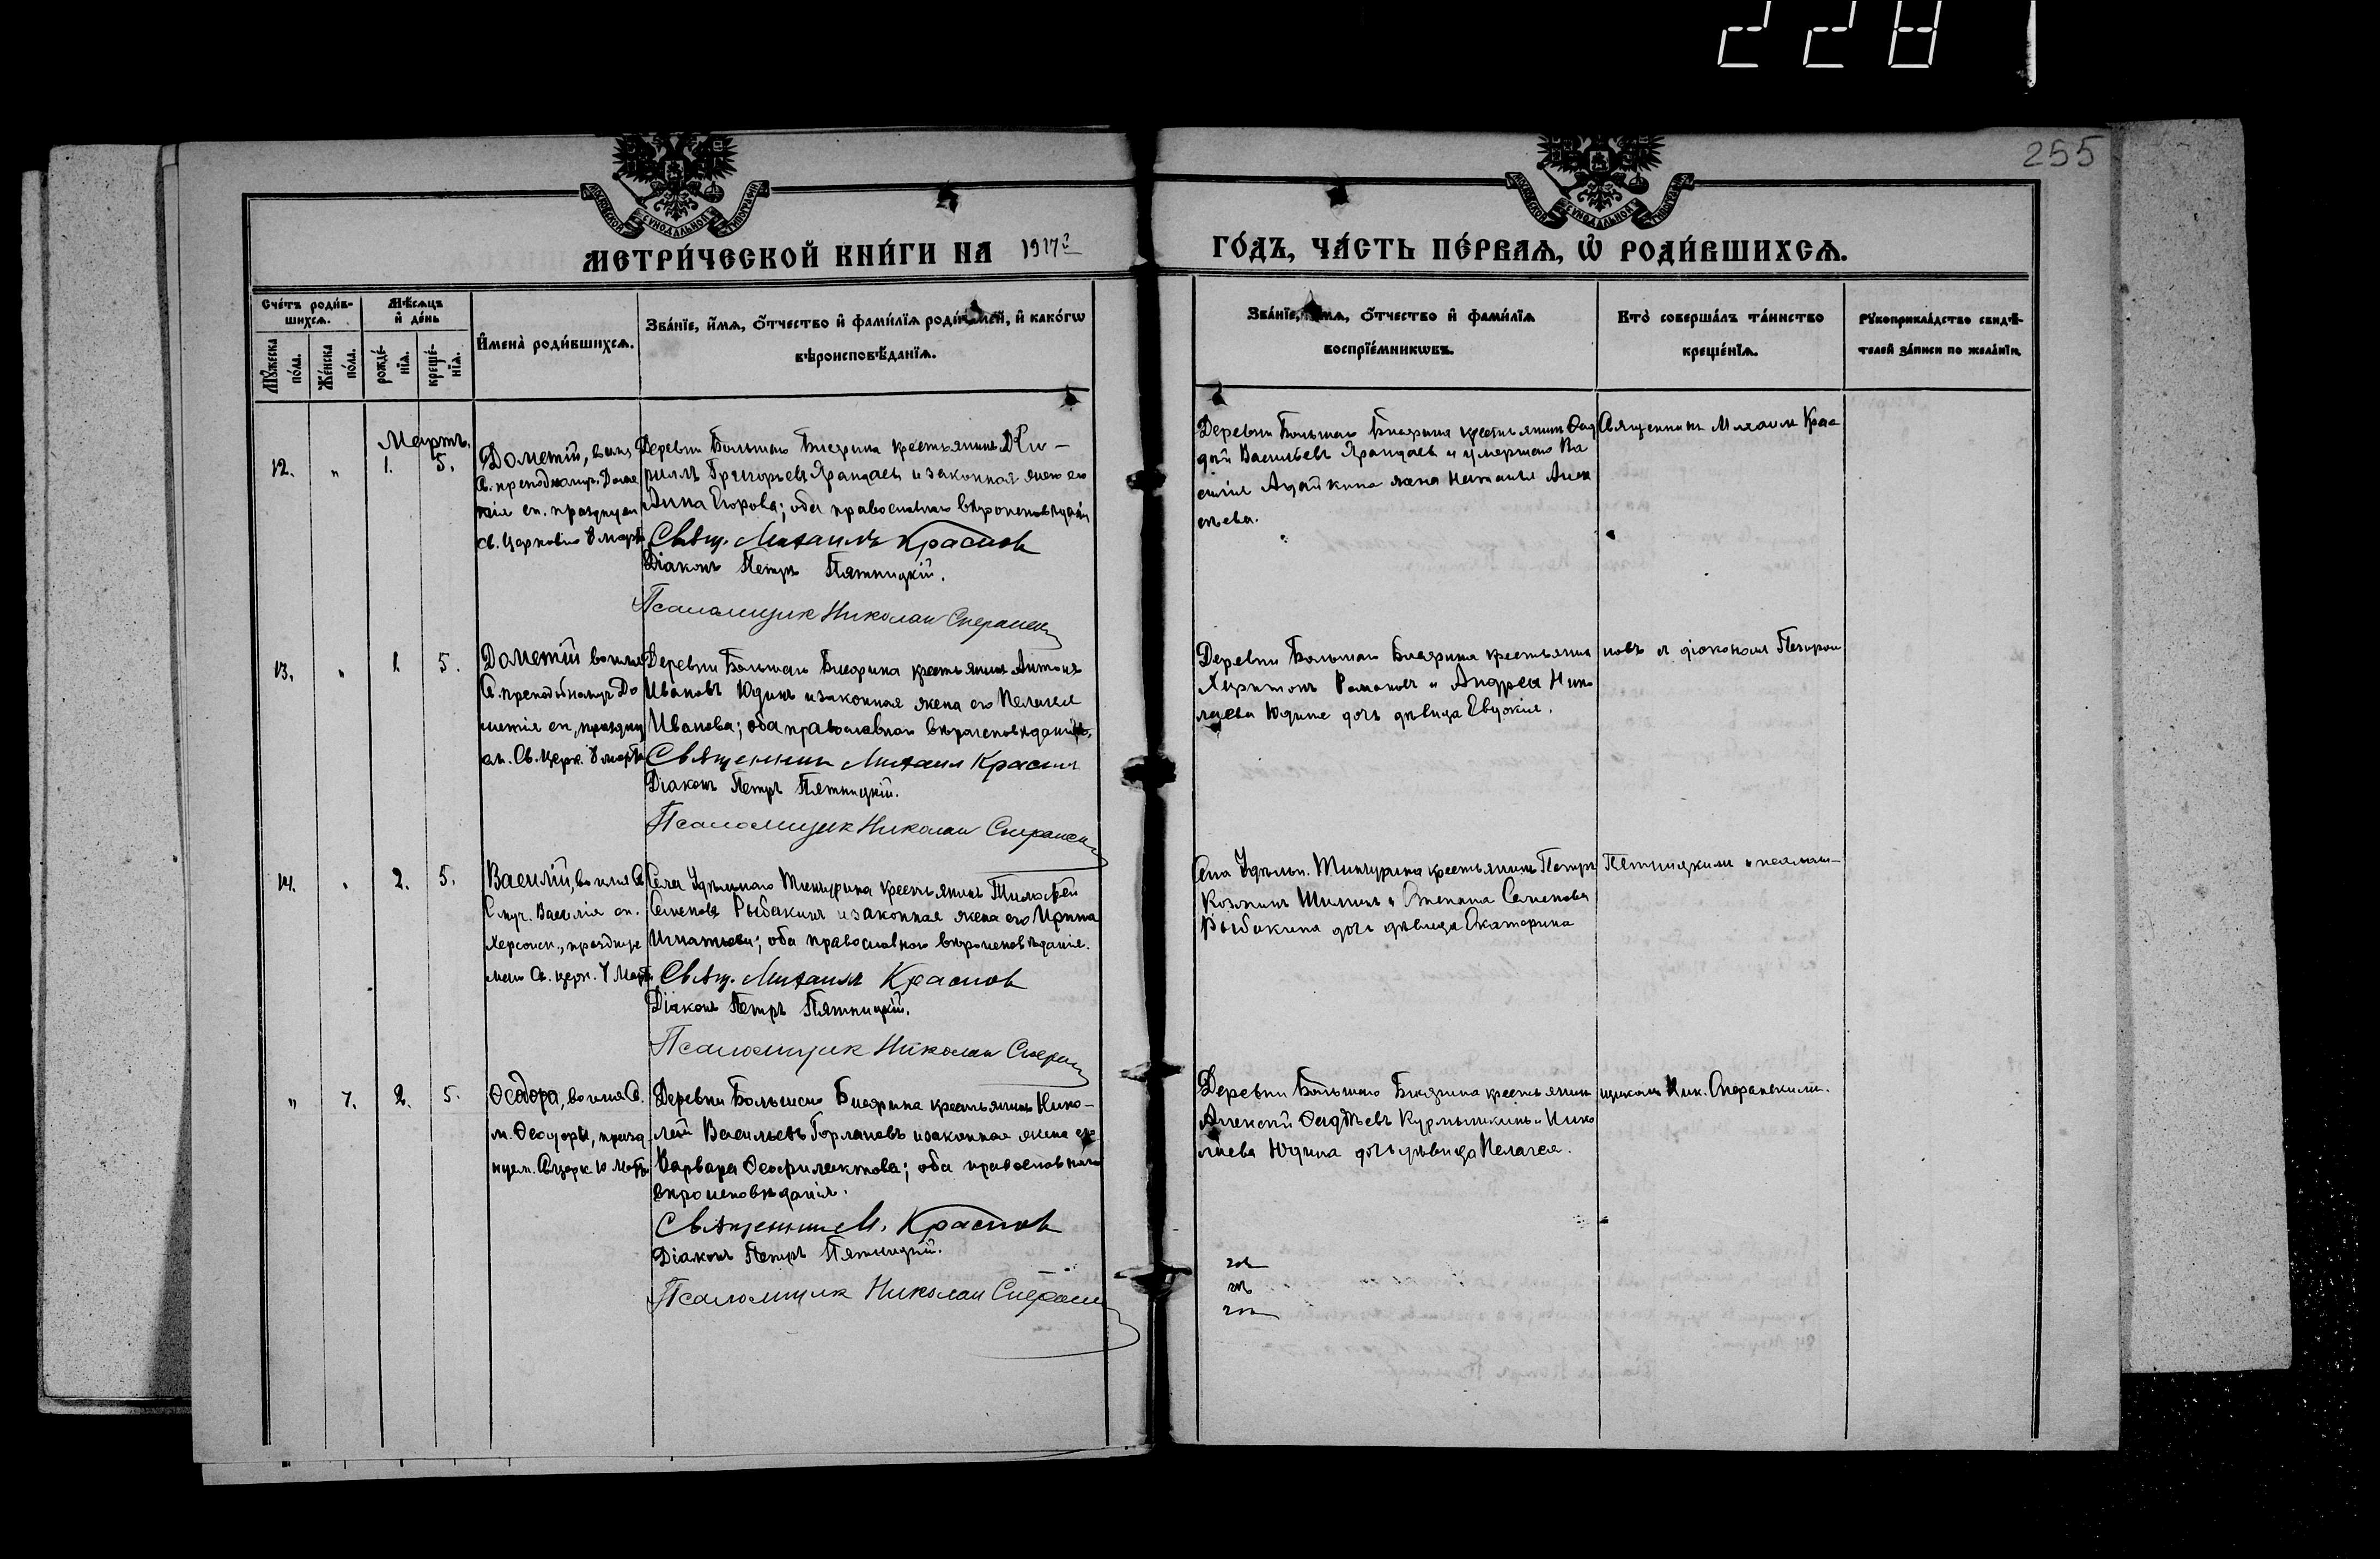 2281
255
МОСКОВСКОЙ СѴНОДАЛЬНОЙ ТИПОГРАФІИ
МОСКОВСКОЙ СѴНОДАЛЬНОЙ ТИПОГРАФІИ
МЕТРИ́ЧЕСКОЙ КНИ́ГИ НА 1917 г
ГО́ДЪ, ЧА́СТЬ ПЕ́РВАѦ, Ѡ҆ РОДИ́ВШИХСѦ.
Сче́тъ роди́в-
шихсѧ.
Мѣ́сѧцъ
и҆ де́нь
Мꙋ́жеска
по́ла.
Же́нска
по́ла.
рожде́-
нїѧ.
креще́-
нїѧ.
И҆мена̀ роди́вшихсѧ.
Зва́нїе, и҆́мѧ, ѻ҆́тчество и҆ фами́лїѧ роди́телей, и҆ како́гѡ
вѣроисповѣ́данїѧ.
Зва́нїе, и҆́мѧ, ѻ҆́тчество и҆ фами́лїѧ
воспрїе́мникѡвъ.
Кто̀ соверша́лъ та́инство
креще́нїѧ.
Рꙋкоприкла́дство свидѣ́-
телей за́писи по жела́нїю.
Мартъ.
12. " 1. 5.
Дометій, во имя
Св. преподномуч. Доме
тія сп. празднуем
св. Церковію 8 марта
Деревни Большаго Бисярина крестьянинъ Ки-
риллъ Григорьевъ Ярандаевъ и законная жена его
Анна Егорова; оба православнаго вѣроисповѣданія
Свящ. Михаилъ Краснов
Діаконъ Петръ Пятницкій.
Псаломщик Николай Сперанск
Деревни Большаго Бисярина крестьянинъ Фад
дей Васильевъ Ярандаевъ и умершаго Ва
силія жена Наталья Алек
сѣева.
Священникъ Михаилъ Крас
13. " 1. 5.
Дометій во имя
Св. преподобномуч До
метія сп, праздну
ем. Св. Церк. 8 марта
Деревни Большаго Бисярина крестьянинъ Антонъ
Ивановъ Юдинъ и законная жена его Пелагея
Иванова; оба православнаго вѣроисповѣданія.
Священник Михаил Краснов
Діаконъ Петръ Пятницкій.
Псаломщик Николай Сперанск
Деревни Большаго Бисярина крестьянин
Харитонъ Романовъ и Андрея Нико
лаева Юдина дочь дѣвица Евдокія.
новъ съ діакономъ Петромъ
14. " 2. 5.
Василій, во имя Св
С муч. Василія еп.
Херсонск., празднуе
маго Св. церк. 7 Марта
Села Удѣльнаго Тинчурина крестьянинъ Тимофей
Семеновъ Рыбакинъ и законная жена его Ирина
Игнатьева; оба православнаго вѣроисповѣданія.
Свящ. Михаилъ Краснов
Діаконъ Петръ Пятницкій.
Псаломщик Николай Сперан
Села Удѣльн. Тинчурина крестьянинъ Петръ
Козминъ Шишинъ и Степана Семенова
Рыбакина дочь дѣвица Екатерина
Пятницкимъ и псалом-
" 7. 2. 5.
Ѳеодора, во имя Св.
м. Ѳеодоры, празд
нуем. Св церк 10 Марта
Деревни Большаго Бисярина крестьянинъ Нико-
лай Васильевъ Горлановъ и законная жена его
Варвара Ѳеофилактова; оба православнаго
вѣроисповѣданія.
Священник М. Краснов
Діаконъ Петръ Пятницкій.
Псаломщик Николай Сперанск
Деревни Большаго Бисярина крестьянин
Алексѣй Ѳаддѣевъ Курмышкинъ и Нико
лаева Юдина дочь дѣвица Пелагея.
щикомъ Ник. Сперанскимъ.